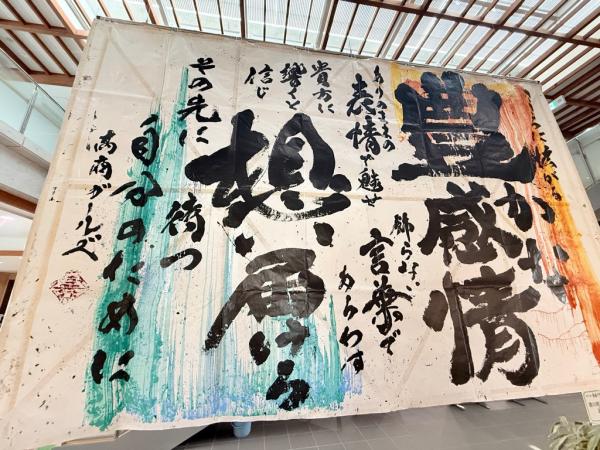 広がる
豊かな
感情
ありのままの
表情で魅せ
飾らない
言葉で
あらわす
貴方に
響くと
信じ
想い届ける
その先に
待つ
自分のために